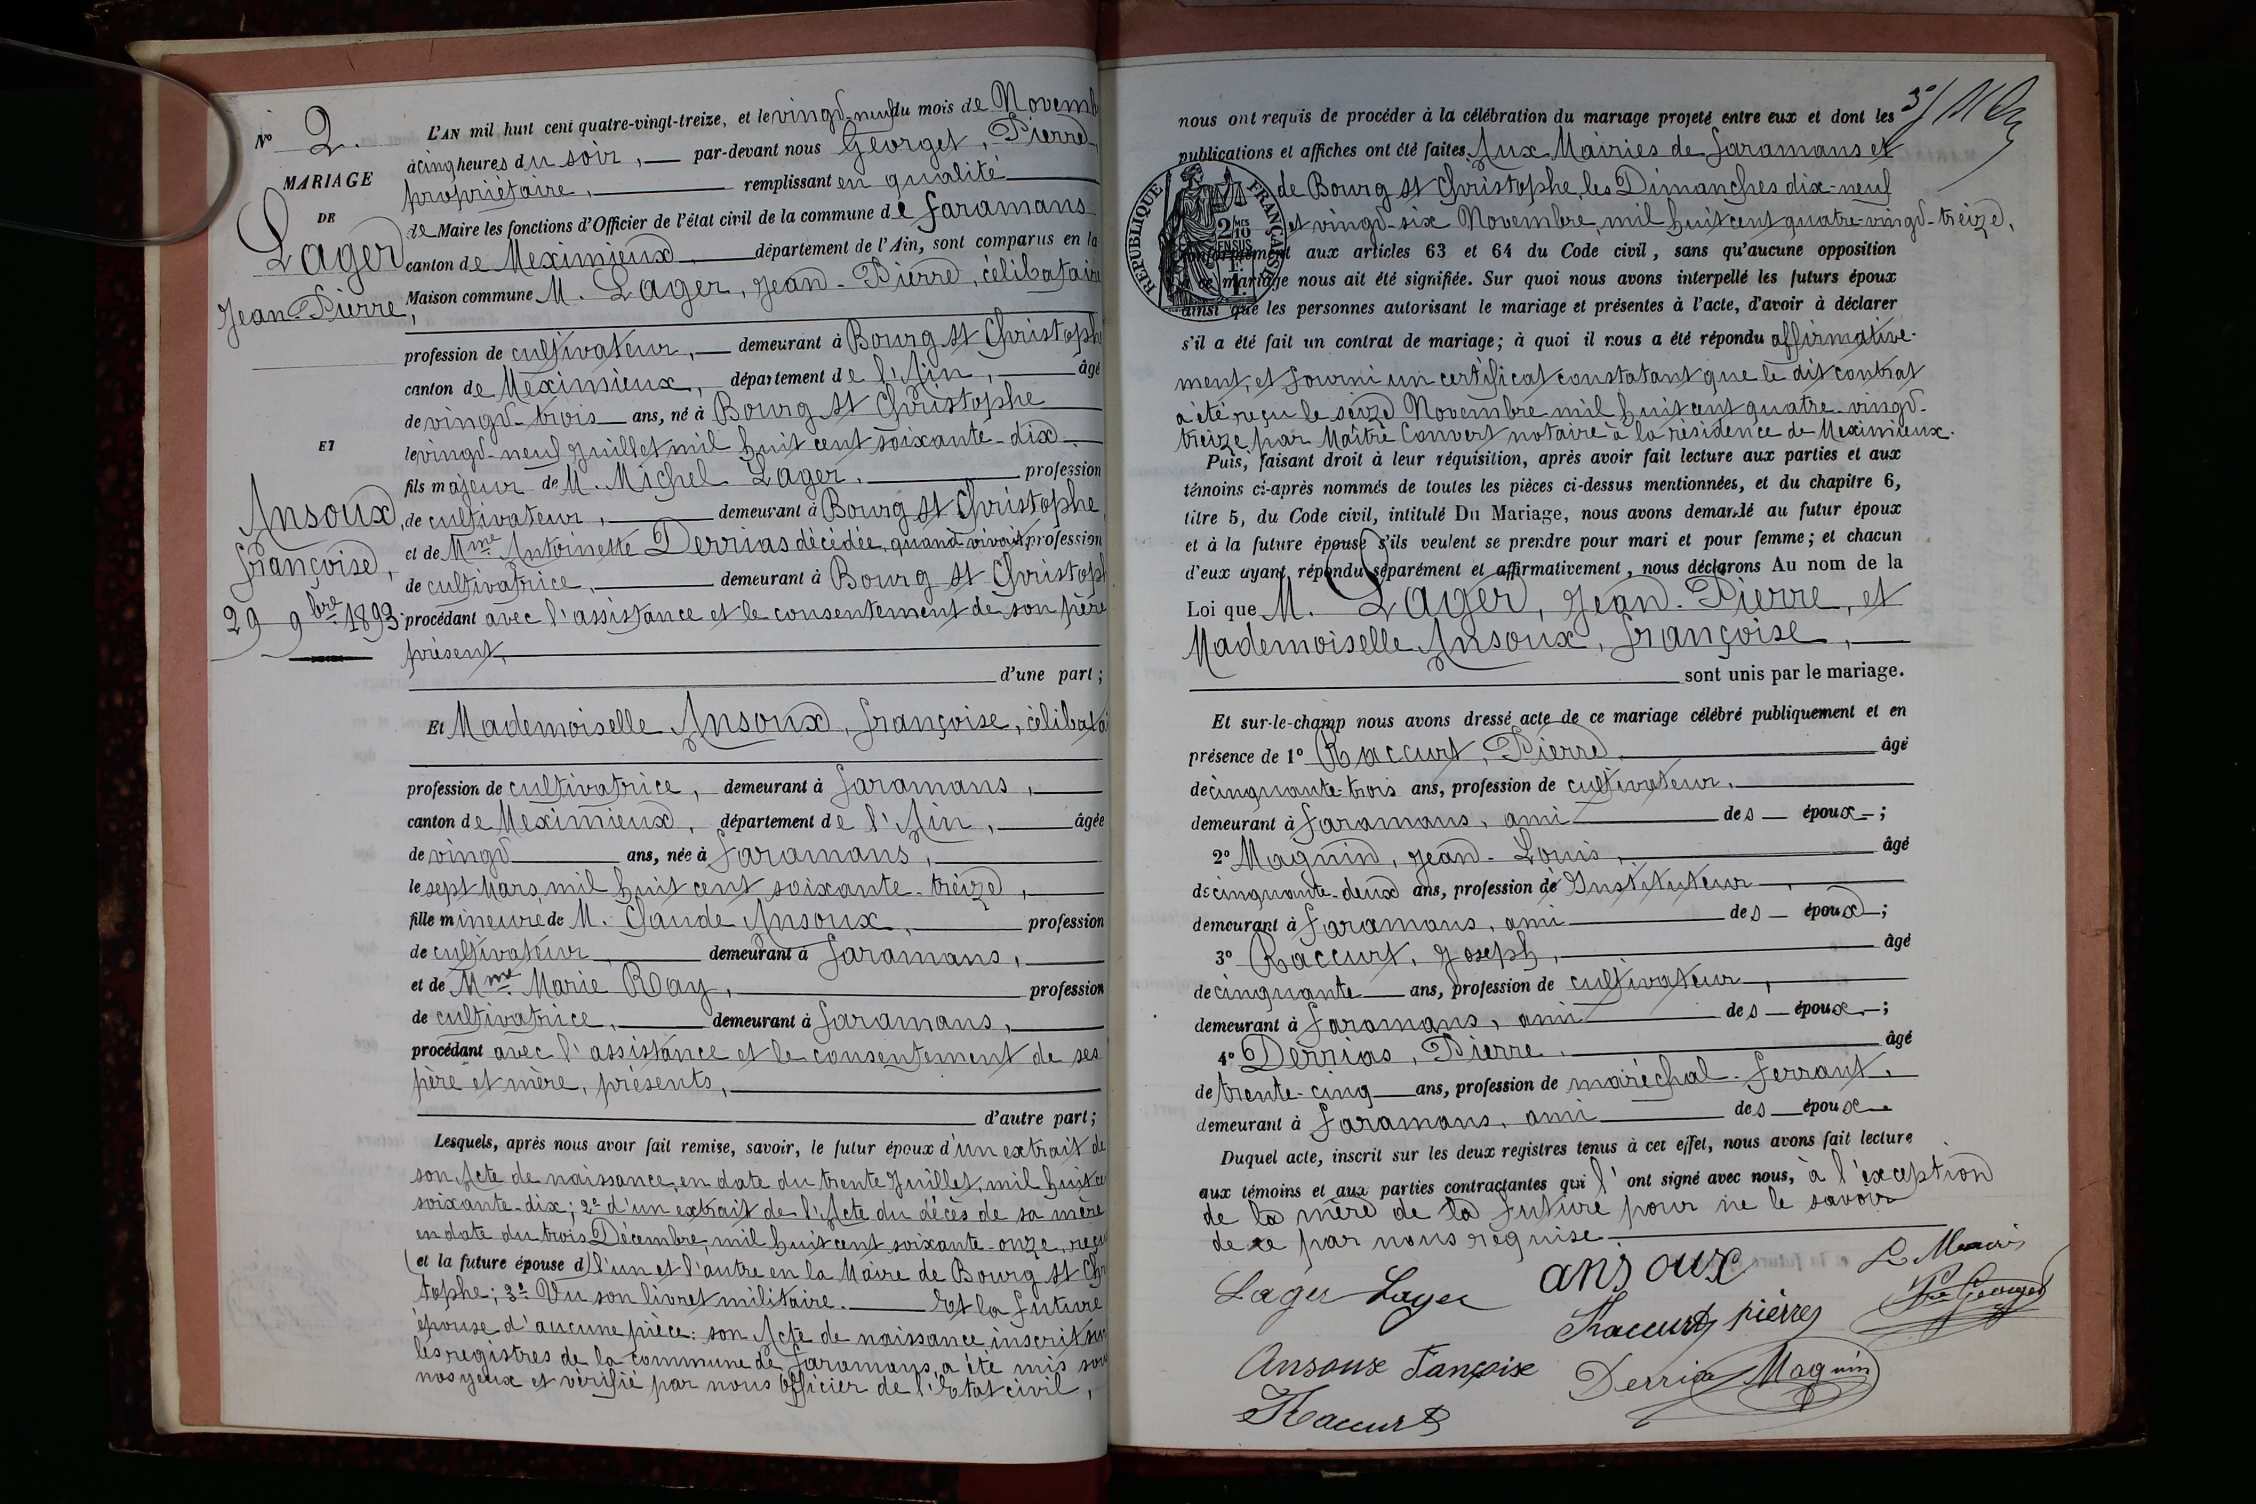 N° 2.
MARIAGE
DE
Lager
Jean-Pierre,
ET
Ansoux,
Françoise,
29 9bre 1893.
L'AN mil huit cent quatre-vingt-treize, et le vingt-neuf du mois de Novemb
à cinq heures du soir, par-devant nous Georget, Pierre,
propriétaire, remplissant en qualité
de Maire les fonctions d'Officier de l'état civil de la commune de Faramans
canton de Meximieux, département de l'Ain, sont comparus en la
Maison commune M. Lager, Jean-Pierre, célibataire
profession de cultivateur, demeurant à Bourg St Christophe
canton de Meximieux, département de l'Ain, âgé
de vingt-trois ans, né à Bourg St Christophe
le vingt-neuf Juillet mil huit cent soixante-dix,
fils majeur de M. Michel Lager, profession
de cultivateur, demeurant à Bourg St Christophe,
et de Mme Antoinette Derrias décédée, quand vivait, profession
de cultivatrice, demeurant à Bourg St Christoph
procédant avec l'assistance et le consentement de son père
présent,
d'une part;
Et Mademoiselle Ansoux, Françoise, célibatai
profession de cultivatrice, demeurant à Faramans,
canton de Meximieux, département de l'Ain, âgée
de vingt ans, née à Faramans,
le sept Mars, mil huit cent soixante-treize,
fille mineure de M. Claude Ansoux, profession
de cultivateur, demeurant à Faramans,
et de Mme Marie Ray, profession
de cultivatrice, demeurant à Faramans,
procédant avec l'assistance et le consentement de ses
père et mère, présents,
d'autre part;
Lesquels, après nous avoir fait remise, savoir, le futur époux d'un extrait de
son Acte de naissance, en date du trente Juillet, mil huit ce
soixante-dix; 2° d'un extrait de l'Acte du décès de sa mère
en date du trois Décembre, mil huit cent soixante-onze, reçu
(et la future épouse d) l'un et l'autre en la Mairie de Bourg St Chr
tophe; 3° Vu son livret militaire. Et la future
épouse d'aucune pièce: son Acte de naissance inscrit sur
les registres de la commune de Faramans, a été mis sous
nos yeux et vérifié par nous Officier de l'Etat civil,
nous ont requis de procéder à la célébration du mariage projeté entre eux et dont les
publications et affiches ont été faites, Aux Mairies de Faramans et
de Bourg St Christophe, les Dimanches dix-neuf
et vingt-six Novembre, mil huit cent quatre-vingt-treize,
conformément aux articles 63 et 64 du Code civil, sans qu'aucune opposition
à ce mariage nous ait été signifiée. Sur quoi nous avons interpellé les futurs époux
ainsi que les personnes autorisant le mariage et présentes à l'acte, d'avoir à déclarer
s'il a été fait un contrat de mariage; à quoi il nous a été répondu affirmative-
ment, et fourni un certificat constatant que le dit contrat
a été reçu le seize Novembre mil huit cent quatre-vingt-
treize, par Maître Convert notaire à la résidence de Meximieux.
RÉPUBLIQUE FRANÇAISE
2/10 EN SUS
1 F.
Puis, faisant droit à leur réquisition, après avoir fait lecture aux parties et aux
témoins ci-après nommés de toutes les pièces ci-dessus mentionnées, et du chapitre 6,
titre 5, du Code civil, intitulé Du Mariage, nous avons demandé au futur époux
et à la future épouse s'ils veulent se prendre pour mari et pour femme; et chacun
d'eux ayant répondu séparément et affirmativement, nous déclarons Au nom de la
Loi que M. Lager, Jean-Pierre, et
Mademoiselle Ansoux, Françoise,
sont unis par le mariage.
Et sur-le-champ nous avons dressé acte de ce mariage célébré publiquement et en
présence de 1° Raccurt, Pierre, âgé
de cinquante-trois ans, profession de cultivateur,
demeurant à Faramans, ami des époux;
2° Magnin, Jean-Louis, âgé
de cinquante-deux ans, profession de Instituteur,
demeurant à Faramans, ami des époux;
3° Raccurt, Joseph, âgé
de cinquante ans, profession de cultivateur,
demeurant à Faramans, ami des époux;
4° Derrias, Pierre, âgé
de trente-cinq ans, profession de maréchal-ferrant,
demeurant à Faramans, ami des époux.
Duquel acte, inscrit sur les deux registres tenus à cet effet, nous avons fait lecture
aux témoins et aux parties contractantes qui l'ont signé avec nous, à l'exception
de la mère de la future pour ne le savoir
de ce par nous requise.
Lager Lager ansoux Le Maire
Raccurt pierre Pre Georget
Ansoux Fançoise Derrias Magnin
Raccurt